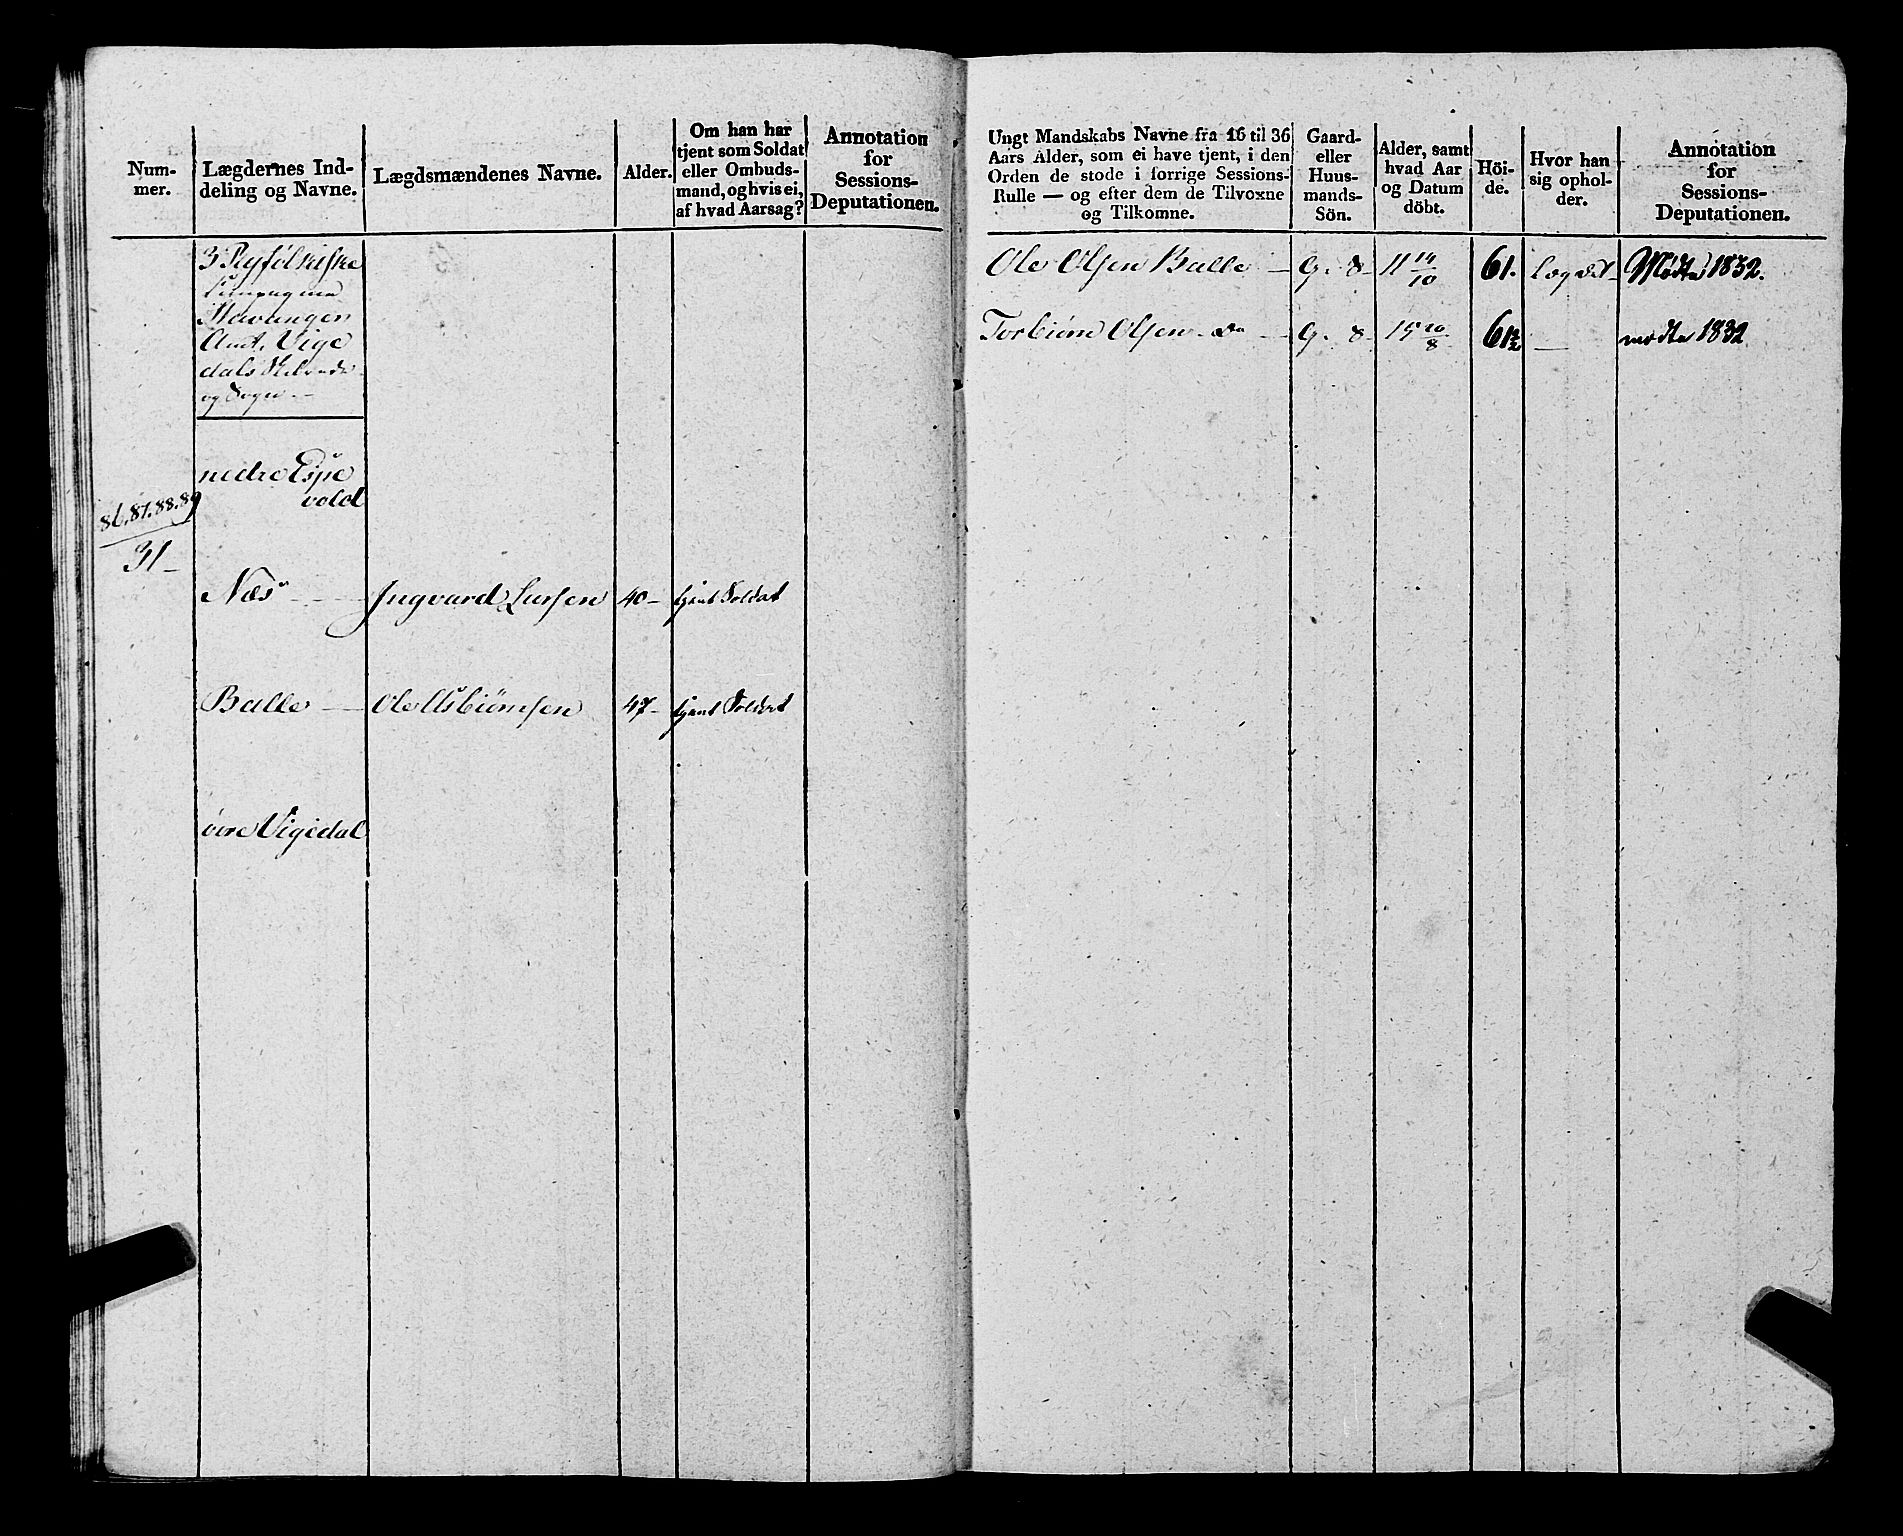 Num-
mer.
Lægdernes Ind-
deling og Navne.
Lægdsmændenes Navne.
Alder.
Om han har
tjent som Soldat
eller Ombuds-
mand, og hvis ei,
af hvad Aarsag?
Annotation
for
Sessions-
Deputationen.
3 Ryfølkiske
Compagnie
Stavanger
Amt. Vige
dals Skibrede
og Sogn
nedre Espe
vold
86.87.88.89
31-
Næs Ingvard Larsen 40- tjent Soldat
Balle Ole Asbiørnsen 47- tjent Soldat
øvre Vigedal
Ungt Mandskabs Navne fra 16 til 36
Aars Alder, som ei have tjent, i den
Orden de stode i forrige Sessions-
Rulle — og efter dem de Tilvoxne
og Tilkomne.
Gaard-
eller
Huus-
mands-
Sön.
Alder, samt
hvad Aar
og Datum
döbt.
Höi-
de.
Hvor han
sig ophol-
der.
Annotation
for
Sessions-
Deputationen.
Ole Olsen Balle — G. 8- 11 14/10 61. Lægdet- Mødte 1832.
Torbiørn Olsen - do — G. 8- 15 20/8 61½ — mødte 1832